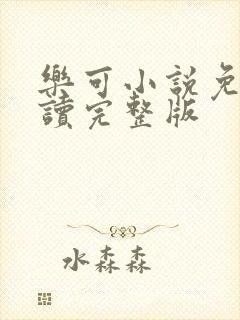 樂可小説免
讀完整版
水森森